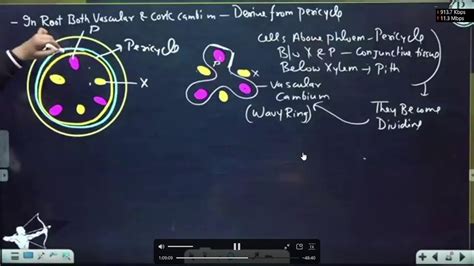 - In Root Both Vascular & Cork Cambium - Derive from Pericycle
P
Pericycle
X
P
X
Vascular
Cambium
(Wavy Ring)
Cells Above phloem - Pericycle
B/w X & P - Conjunctive tissue
Below Xylem → Pith
They Become
Dividing
913.7 Kbps
11.3 Mbps
1:09:09
-48:40